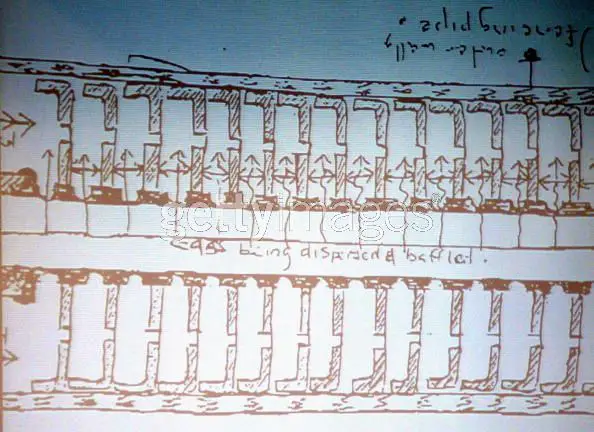 outer wall
forming pipe
gettyimages
gas being dispersed & baffled.